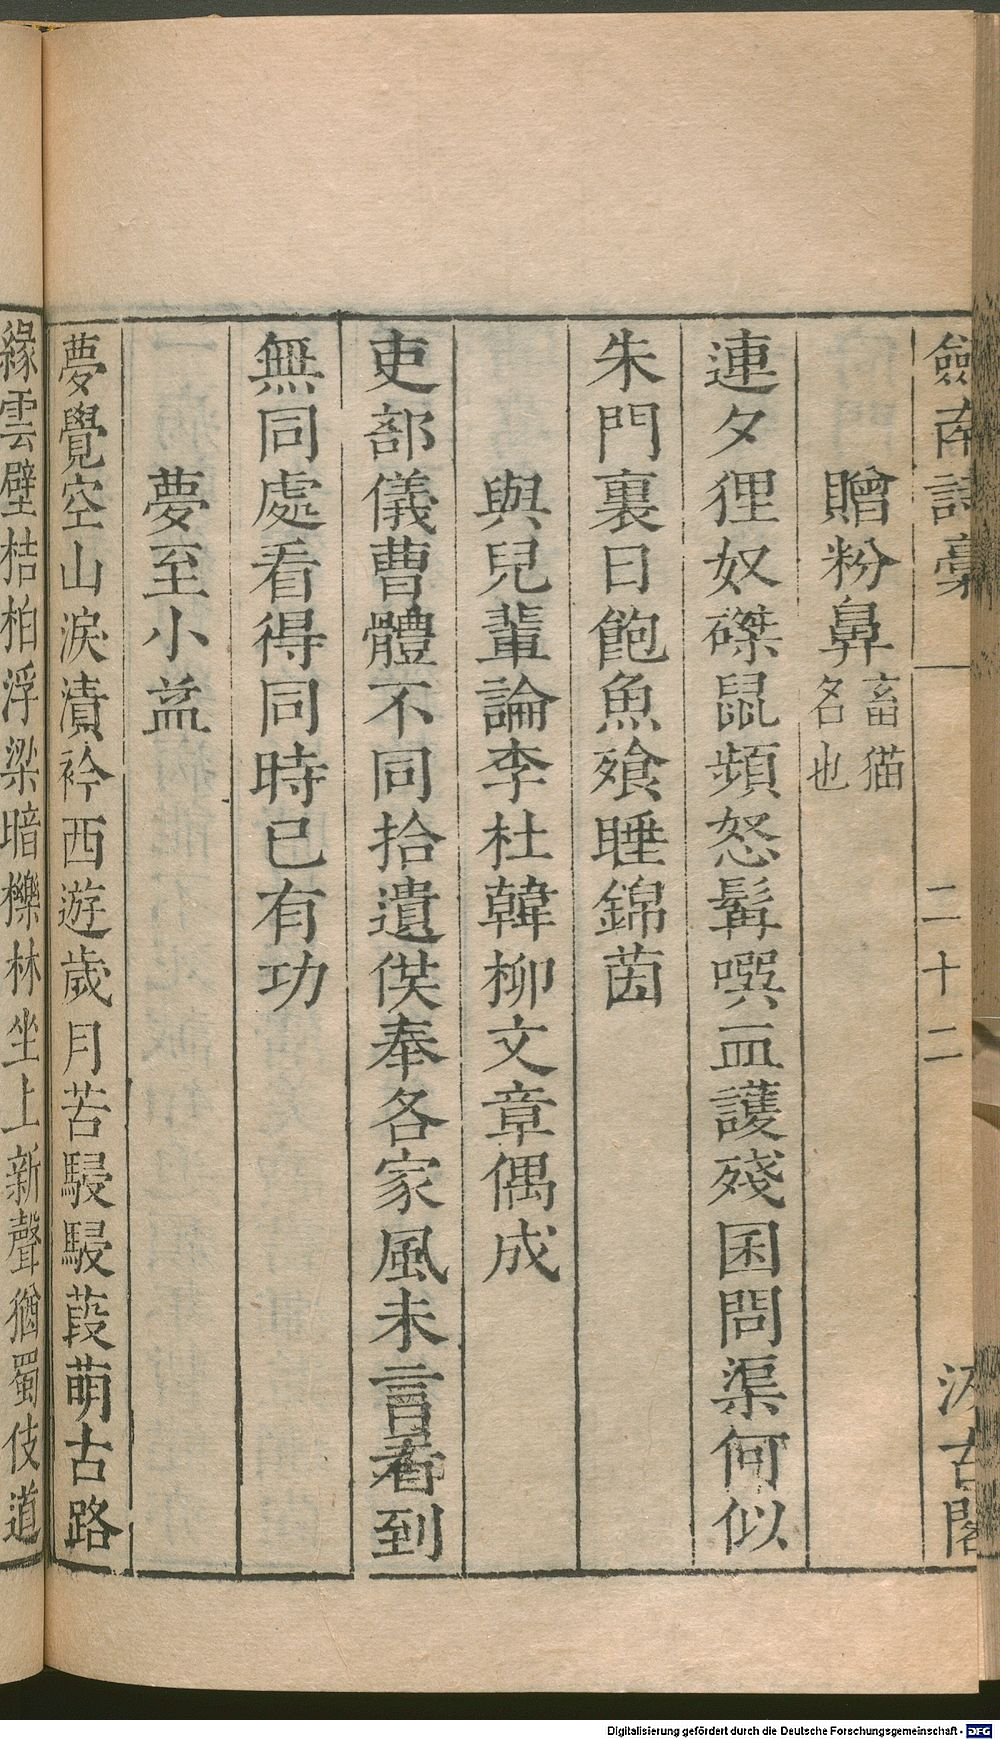 劍南詩稾 二十二 汲古閣
贈粉鼻畜猫名也
連夕狸奴磔鼠頻怒髯噀血護殘囷問渠何似
朱門裏日飽魚飧睡錦茵
與兒輩論李杜韓柳文章偶成
吏部儀曹體不同拾遺供奉各家風未言看到
無同處看得同時已有功
夢至小益
夢覺空山淚漬衿西遊歲月苦駸駸葭萌古路
緣雲壁桔柏浮梁暗櫟林坐上新聲猶蜀伎道
Digitalisierung gefördert durch die Deutsche Forschungsgemeinschaft - DFG